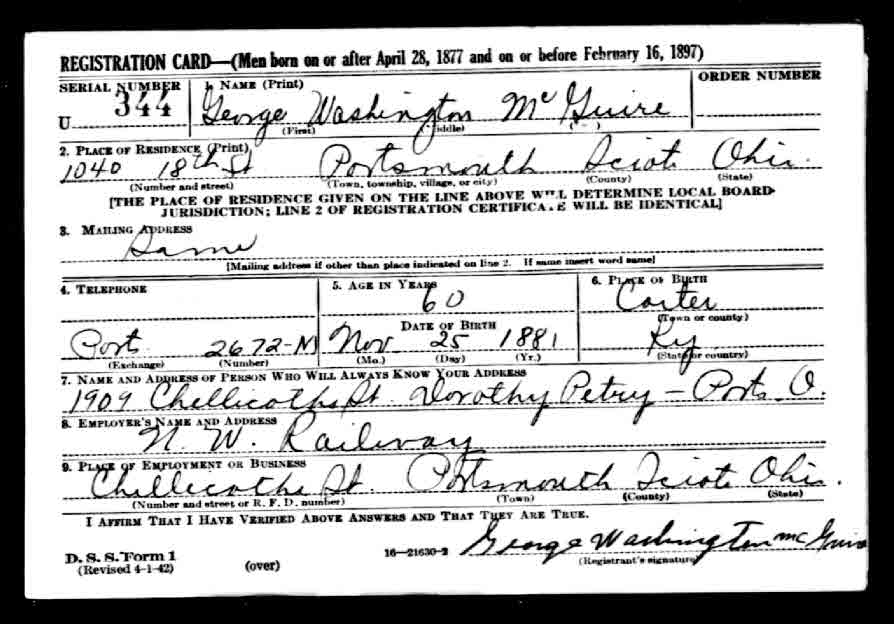 REGISTRATION CARD—(Men born on or after April 28, 1877 and on or before February 16, 1897)
SERIAL NUMBER 1. NAME (Print) ORDER NUMBER
U 344 George Washington McGuire
(First) (Middle) (Last)
2. PLACE OF RESIDENCE (Print)
1040 18th St Portsmouth Scioto Ohio.
(Number and street) (Town, township, village, or city) (County) (State)
[THE PLACE OF RESIDENCE GIVEN ON THE LINE ABOVE WILL DETERMINE LOCAL BOARD
JURISDICTION; LINE 2 OF REGISTRATION CERTIFICATE WILL BE IDENTICAL]
3. MAILING ADDRESS
Same
[Mailing address if other than place indicated on line 2. If same insert word same]
4. TELEPHONE 5. AGE IN YEARS 6. PLACE OF BIRTH
60 Carter
DATE OF BIRTH (Town or county)
Ports 2672-M Nov 25 1881 Ky
(Exchange) (Number) (Mo.) (Day) (Yr.) (State or country)
7. NAME AND ADDRESS OF PERSON WHO WILL ALWAYS KNOW YOUR ADDRESS
1909 Chillicothe St. Dorothy Petry – Ports. O.
8. EMPLOYER'S NAME AND ADDRESS
N. W. Railway
9. PLACE OF EMPLOYMENT OR BUSINESS
Chillicothe St. Portsmouth Scioto Ohio.
(Number and street or R. F. D. number) (Town) (County) (State)
I AFFIRM THAT I HAVE VERIFIED ABOVE ANSWERS AND THAT THEY ARE TRUE.
D. S. S. Form 1 16—21630-2 George Washington McGuire
(Revised 4-1-42) (over) (Registrant's signature)